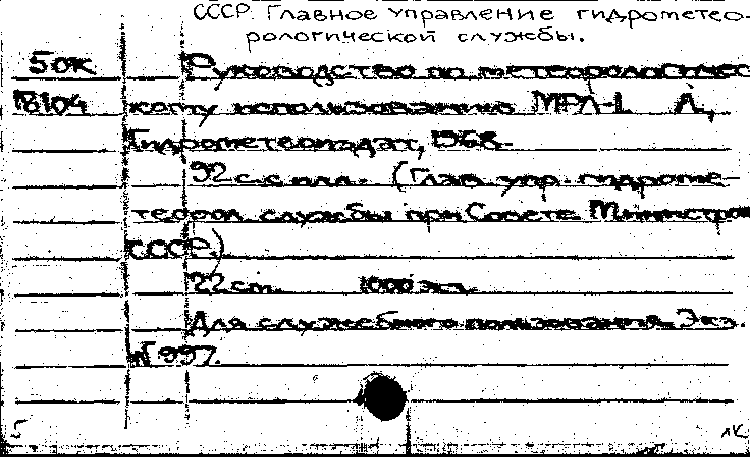 СССР. Главное управление гидрометео-
рологической службы.
50к Руководство по метеорологичес
104 кому использованию МРЛ-1 Л.,
Гидрометеоиздат, 1968.
92 с. с илл. (Глав. упр. гидроме-
теорол. службы при Совете Министров
СССР.)
22 см. 1000 экз.
Для служебного пользования. Экз.
№ 997.
5 лк